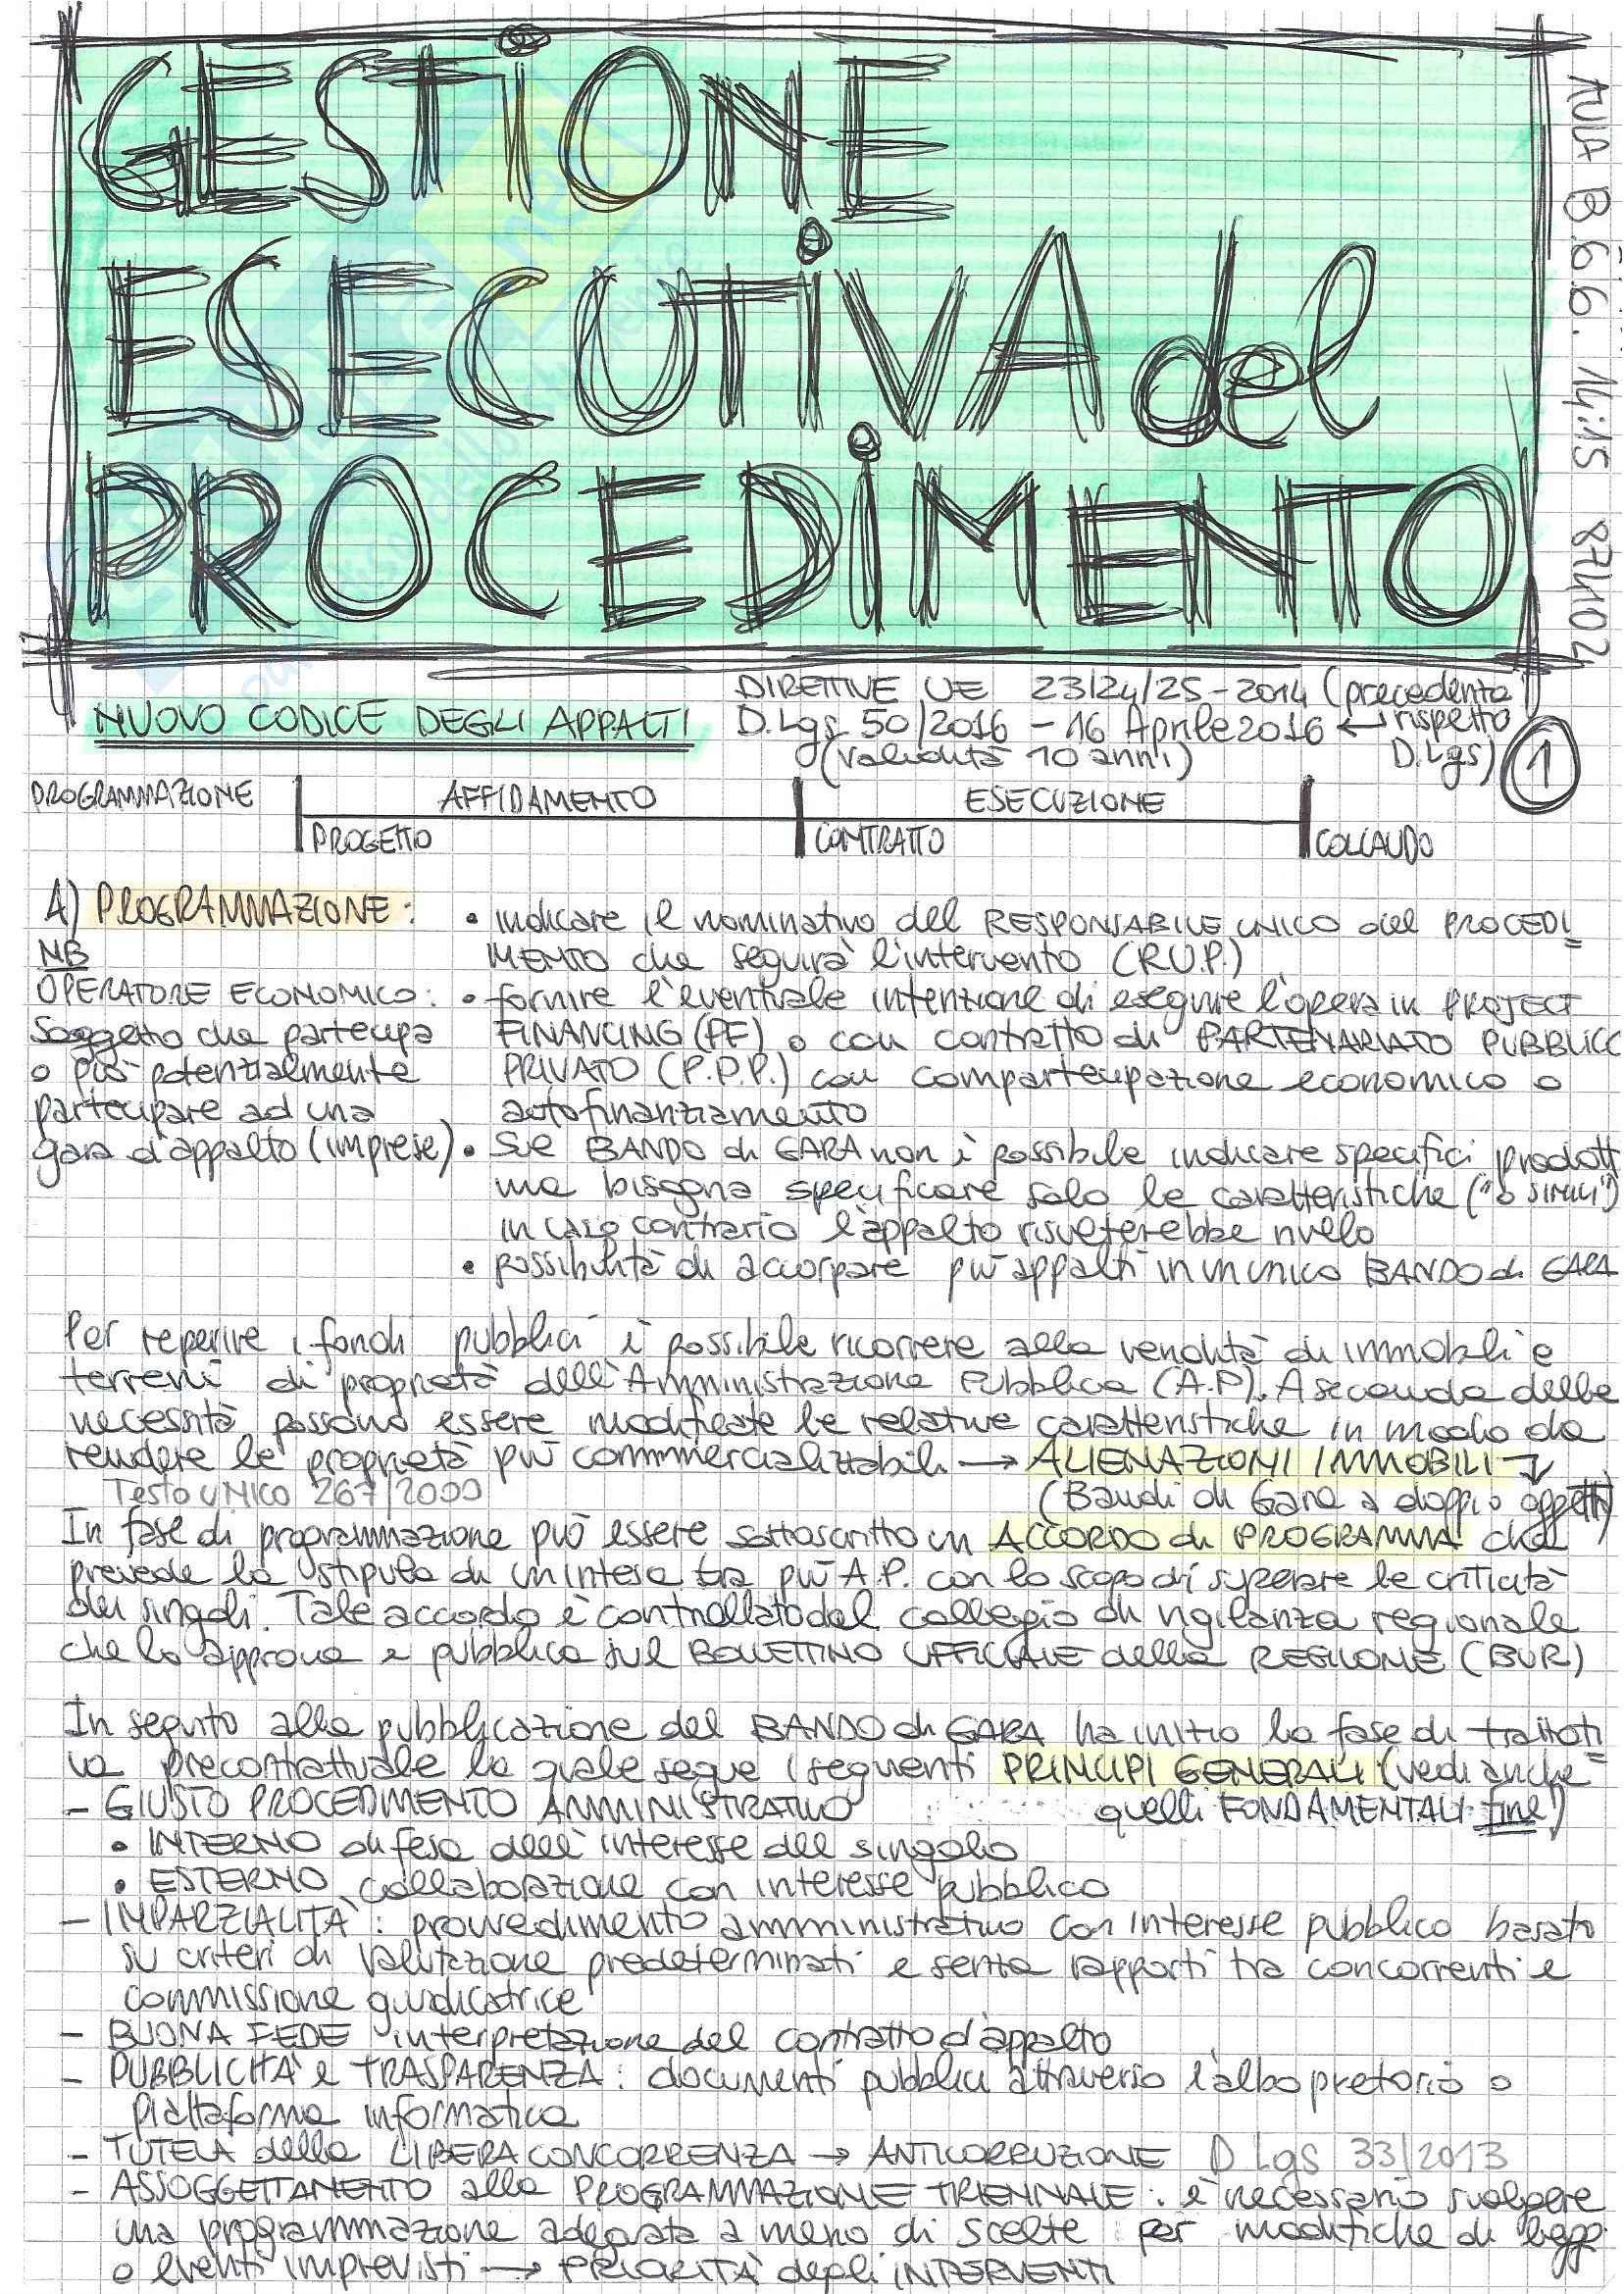 GESTIONE
ESECUTIVA del
PROCEDIMENTO
AULA B.6.6. 14:15 874102
NUOVO CODICE DEGLI APPALTI
DIRETTIVE UE 23/24/25-2014 (precedente
D.Lgs 50/2016 - 16 Aprile 2016 ← rispetto
(validità 10 anni) D.Lgs)
1
PROGRAMMAZIONE AFFIDAMENTO ESECUZIONE
PROGETTO CONTRATTO COLLAUDO
A) PROGRAMMAZIONE:
• indicare il nominativo del RESPONSABILE UNICO del PROCEDI
MENTO che seguirà l'intervento (R.U.P.)
• fornire l'eventuale intenzione di eseguire l'opera in PROJECT
FINANCING (PF) o con contratto di PARTENARIATO PUBBLICO
PRIVATO (P.P.P.) con compartecipazione economico o
autofinanziamento
• Sul BANDO di GARA non è possibile indicare specifici prodotti
ma bisogna specificare solo le caratteristiche ("o SIMILI")
in caso contrario l'appalto risulterebbe nullo
• possibilità di accorpare più appalti in un unico BANDO di GARA
NB
OPERATORE ECONOMICO:
Soggetto che partecipa
o può potenzialmente
partecipare ad una
gara d'appalto (imprese)
Per reperire i fondi pubblici è possibile ricorrere alla vendita di immobili e
terreni di proprietà dell'Amministrazione Pubblica (A.P). A seconda delle
necessità possono essere modificate le relative caratteristiche in modo da
rendere le proprietà più commmercializzabili → ALIENAZIONI IMMOBILI ↓
Testo UNICO 267/2000 (Bandi di Gara a doppio oggetto)
In fase di programmazione può essere sottoscritto un ACCORDO di PROGRAMMA che
prevede la stipula di un'intesa tra più A.P. con lo scopo di superare le criticità
dei singoli. Tale accordo è controllato dal collegio di vigilanza regionale
che lo approva e pubblica sul BOLLETTINO UFFICIALE della REGIONE (BUR)
In seguito alla pubblicazione del BANDO di GARA ha inizio la fase di trattati
va precontrattuale la quale segue i seguenti PRINCIPI GENERALI (vedi anche
quelli FONDAMENTALI fine)
- GIUSTO PROCEDIMENTO AMMINISTRATIVO
• INTERNO difesa dell'interesse del singolo
• ESTERNO collaborazione con interesse pubblico
- IMPARZIALITÀ: provvedimento amministrativo con interesse pubblico basato
su criteri di valutazione predeterminati e senza rapporti tra concorrenti e
commissione giudicatrice
- BUONA FEDE interpretazione del contratto d'appalto
- PUBBLICITÀ e TRASPARENZA: documenti pubblici attraverso l'albo pretorio o
piattaforma informatica
- TUTELA della LIBERA CONCORRENZA → ANTICORRUZIONE D Lgs 33/2013
- ASSOGGETTAMENTO alla PROGRAMMAZIONE TRIENNALE: è necessario svolgere
una programmazione adeguata a meno di scelte per modifiche di legge
o eventi imprevisti → PRIORITÀ degli INTERVENTI